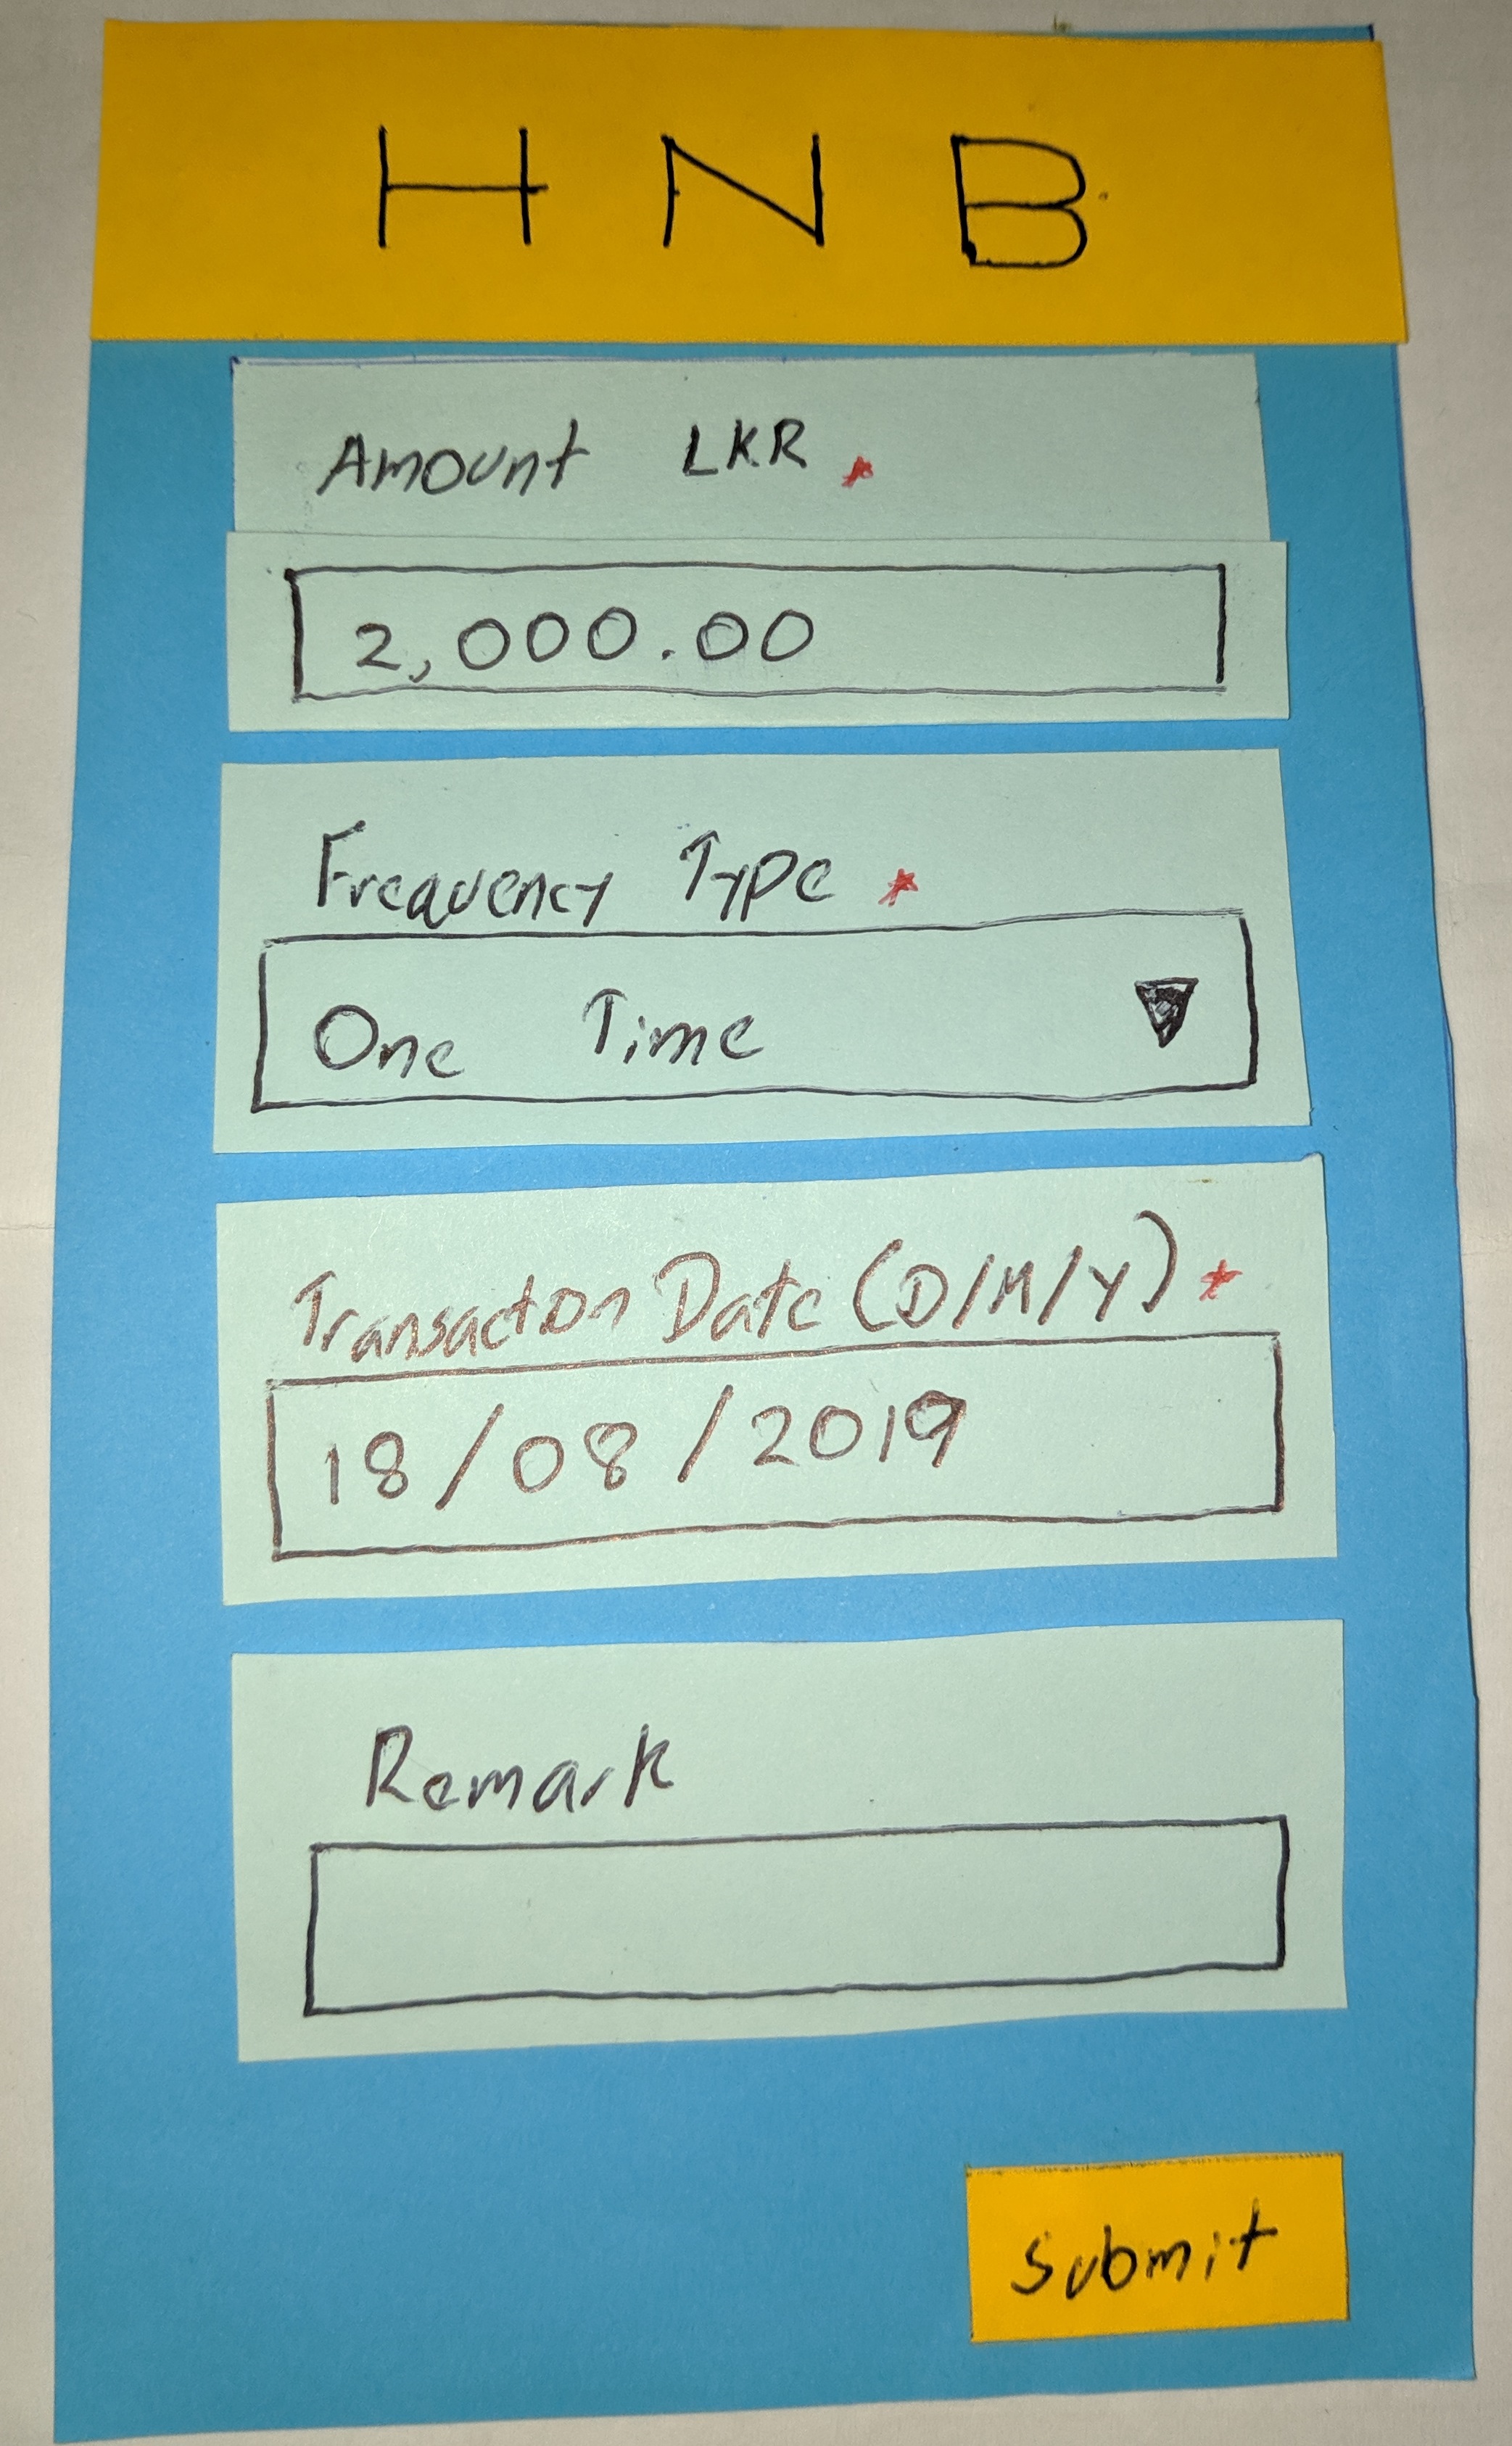 H N B
Amount LKR *
2,000.00
Frequency Type *
One Time
Transaction Date (D/M/Y) *
18/08/2019
Remark
Submit